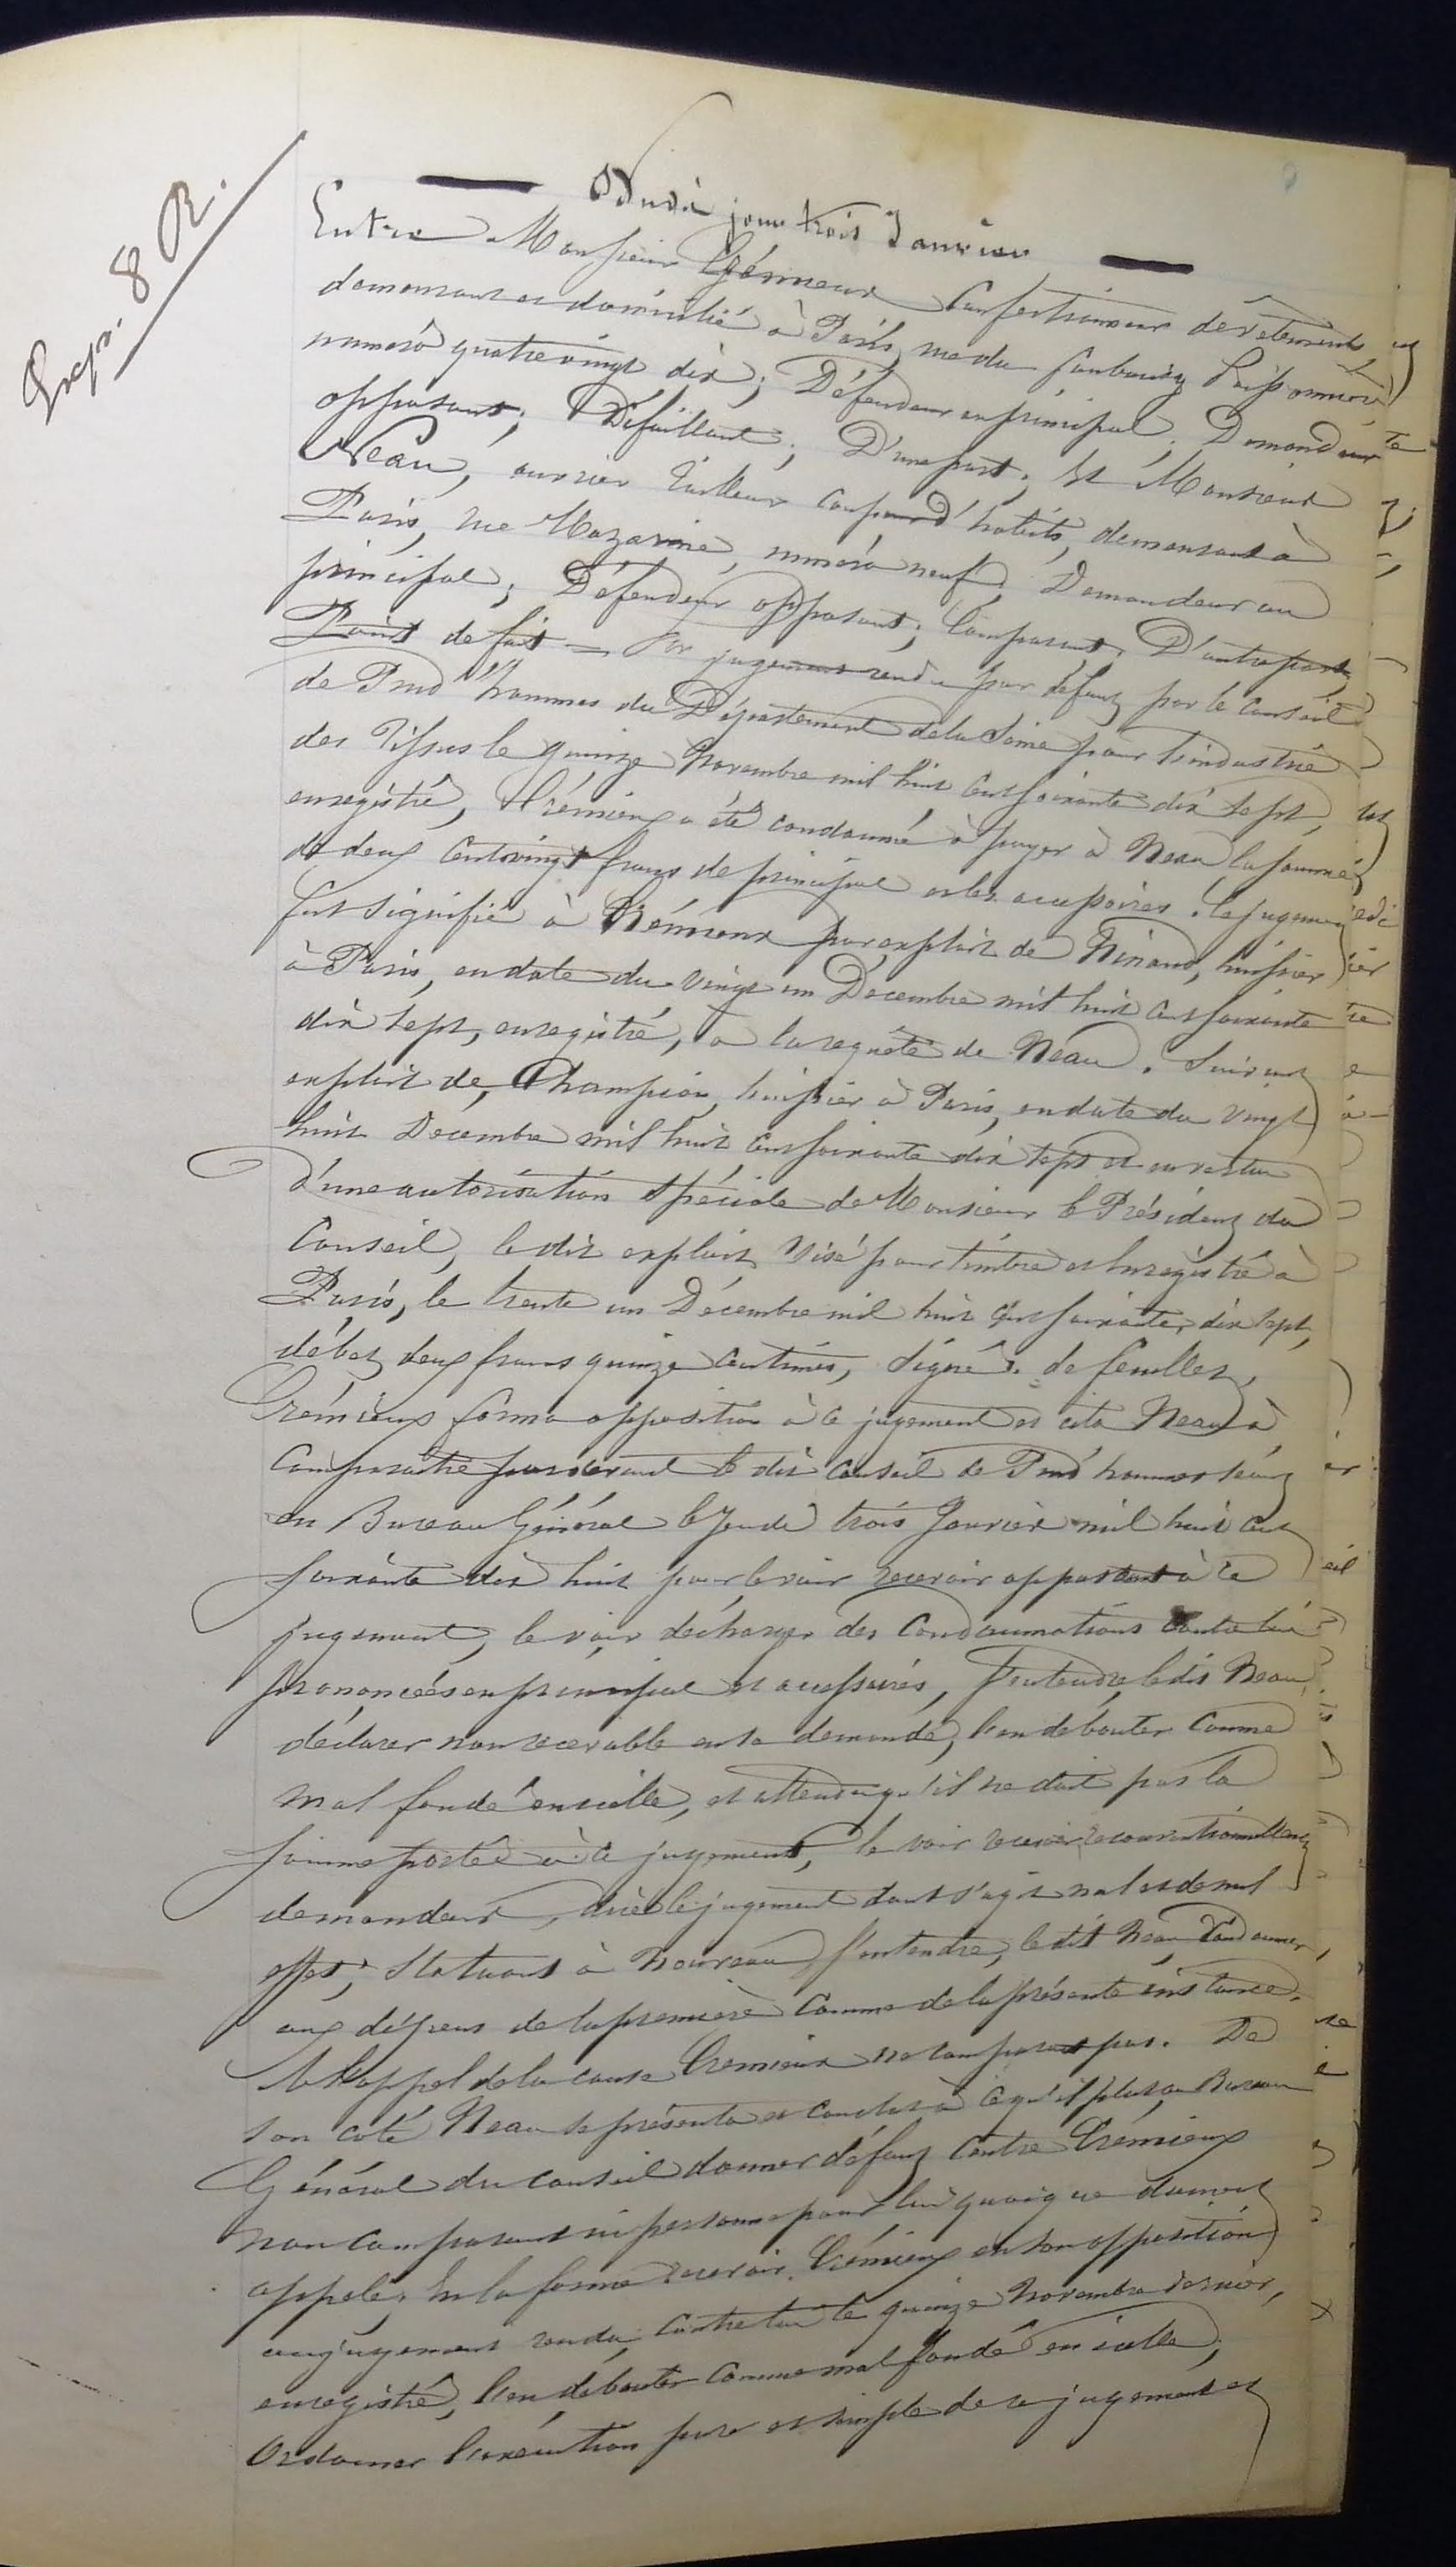 Exp. 8 R.
Dudit jour trois Janvier
Entre Monsieur Crémieux Confectionneur de vêtements,
demeurant et domicilié à Paris, rue du faubourg Poissonnière
numéro quatre vingt dix; Défendeur au principal, Demandeur
opposant; Défaillant; D'une part; Et Monsieur
Neau, ouvrier tailleur coupeur d'habits, demeurant à
Paris, rue Mazarine, numéro neuf; Demandeur au
principal; Défendeur opposant; Comparant; D'autre part
Point de fait — Par jugement rendu par défaut par le Conseil
de Prud'hommes du Département de la Seine pour l'industrie
des Tissus le quinze Novembre mil huit cent soixante dix sept,
enregistré, Crémieux a été condamné à payer à Neau la somme
de deux cent vingt francs de principal et les accessoires. Ce jugement
fut signifié à Crémieux par exploit de huissier
à Paris, en date du vingt un Décembre mil huit cent soixante
dix sept, enregistré, à la requête de Neau. Suivant
exploit de Champion, huissier à Paris, en date du vingt
huit Décembre mil huit cent soixante dix sept et en vertu
d'une autorisation spéciale de Monsieur le Président du
Conseil, le dit exploit visé pour timbre et enregistré à
Paris, le trente un Décembre mil huit cent soixante dix sept,
débet deux francs quinze centimes, signé: de feuillez,
Crémieux forma opposition à ce jugement et cita Neau à
comparaître par devant le dit Conseil de Prud'hommes séant
en Bureau Général le Jeudi trois Janvier mil huit cent
soixante dix huit pour le voir recevoir opposant à ce
jugement, le voir décharger des condamnations contre lui
prononcées en principal et accessoires, s'entendre ledit Neau
déclarer non recevable en sa demande, l'en débouter comme
mal fondé en icelle, et attendu qu'il ne doit pas la
somme portée à ce jugement, le voir recevoir reconventionnellement
demandeur, dire le jugement dont s'agit nul et de nul
effet; Statuant à nouveau s'entendre, ledit Neau condamner
aux dépens de la première comme de la présente instance.
A l'appel de la cause Crémieux ne comparut pas. De
son côté Neau se présenta et conclut à ce qu'il plut au Bureau
Général du Conseil donner défaut contre Crémieux
non comparant ni personne pour lui quoique dument
appelé, En la forme recevoir Crémieux en son opposition
au jugement rendu contre lui le quinze Novembre dernier,
enregistré, l'en débouter comme mal fondé en icelle;
Ordonner l'exécution pure et simple de ce jugement et